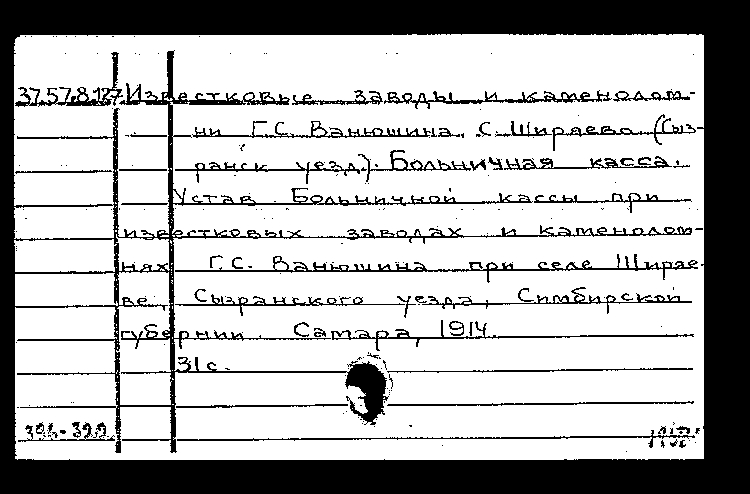 37.57.8.127 Известковые заводы и каменолом-
ни Г.С. Ванюшина, с. Ширяево (Сыз-
ранск уезд). Больничная касса.
Устав Больничной кассы при
известковых заводах и каменолом-
нях Г.С. Ванюшина при селе Ширяе-
ве, Сызранского уезда, Симбирской
губернии. Самара, 1914.
31 с.